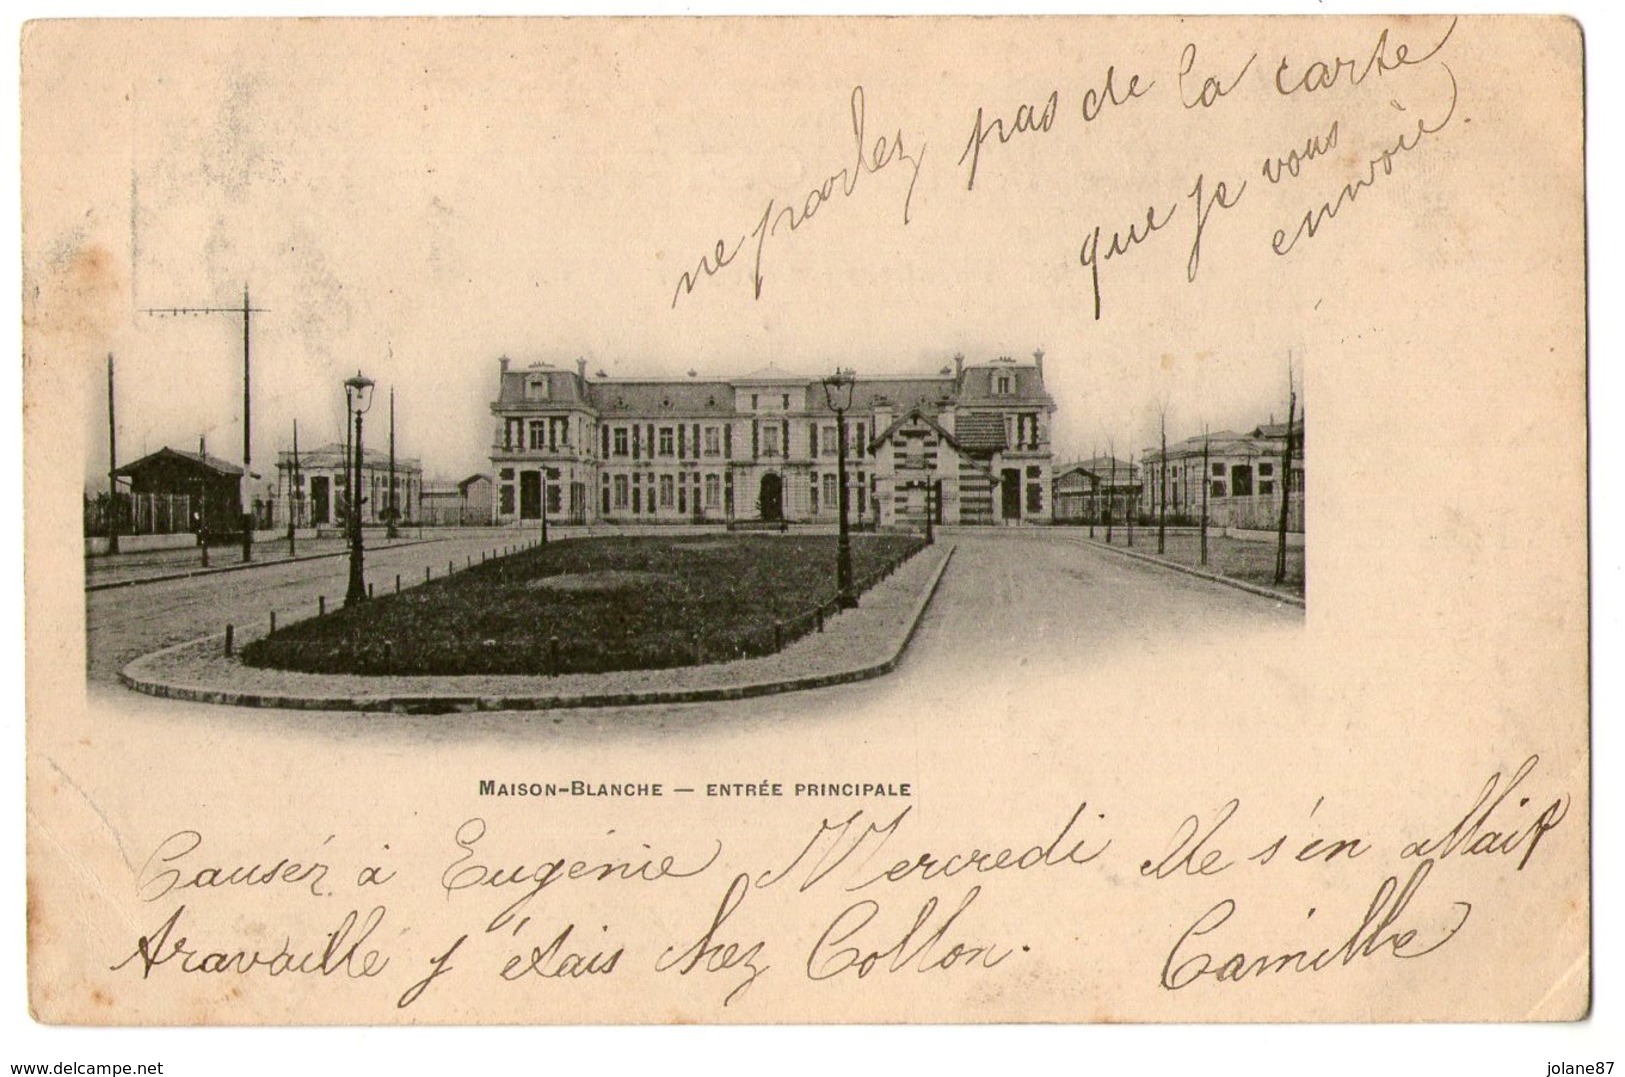 ne parlez pas de la carte
que je vous
envoie.
MAISON-BLANCHE — ENTRÉE PRINCIPALE
Causér à Eugénie Mercredi elle s'en allait
travaillé j'étais chez Collon. Camille
www.delcampe.net
jolane87